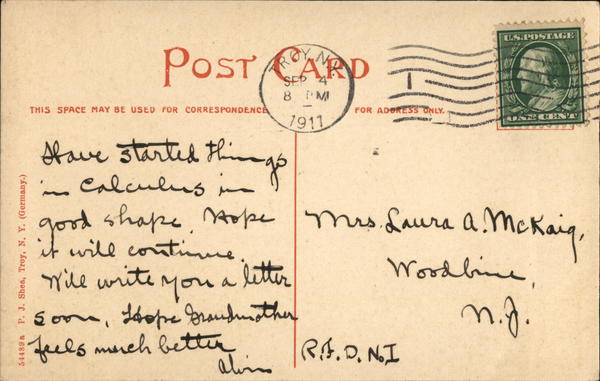 POST CARD
TROY, N.Y.
SEP 4
8 PM
1911
1
U.S. POSTAGE
ONE CENT
THIS SPACE MAY BE USED FOR CORRESPONDENCE
FOR ADDRESS ONLY.
Have started things
in Calculus in
good shape. Hope
it will continue.
Will write you a letter
soon. Hope Grandmother
feels much better
Mrs. Laura A. McKaig,
Woodbine,
N.J.
R.F.D. No. 1
54489a P. J. Shea, Troy, N. Y. (Germany.)